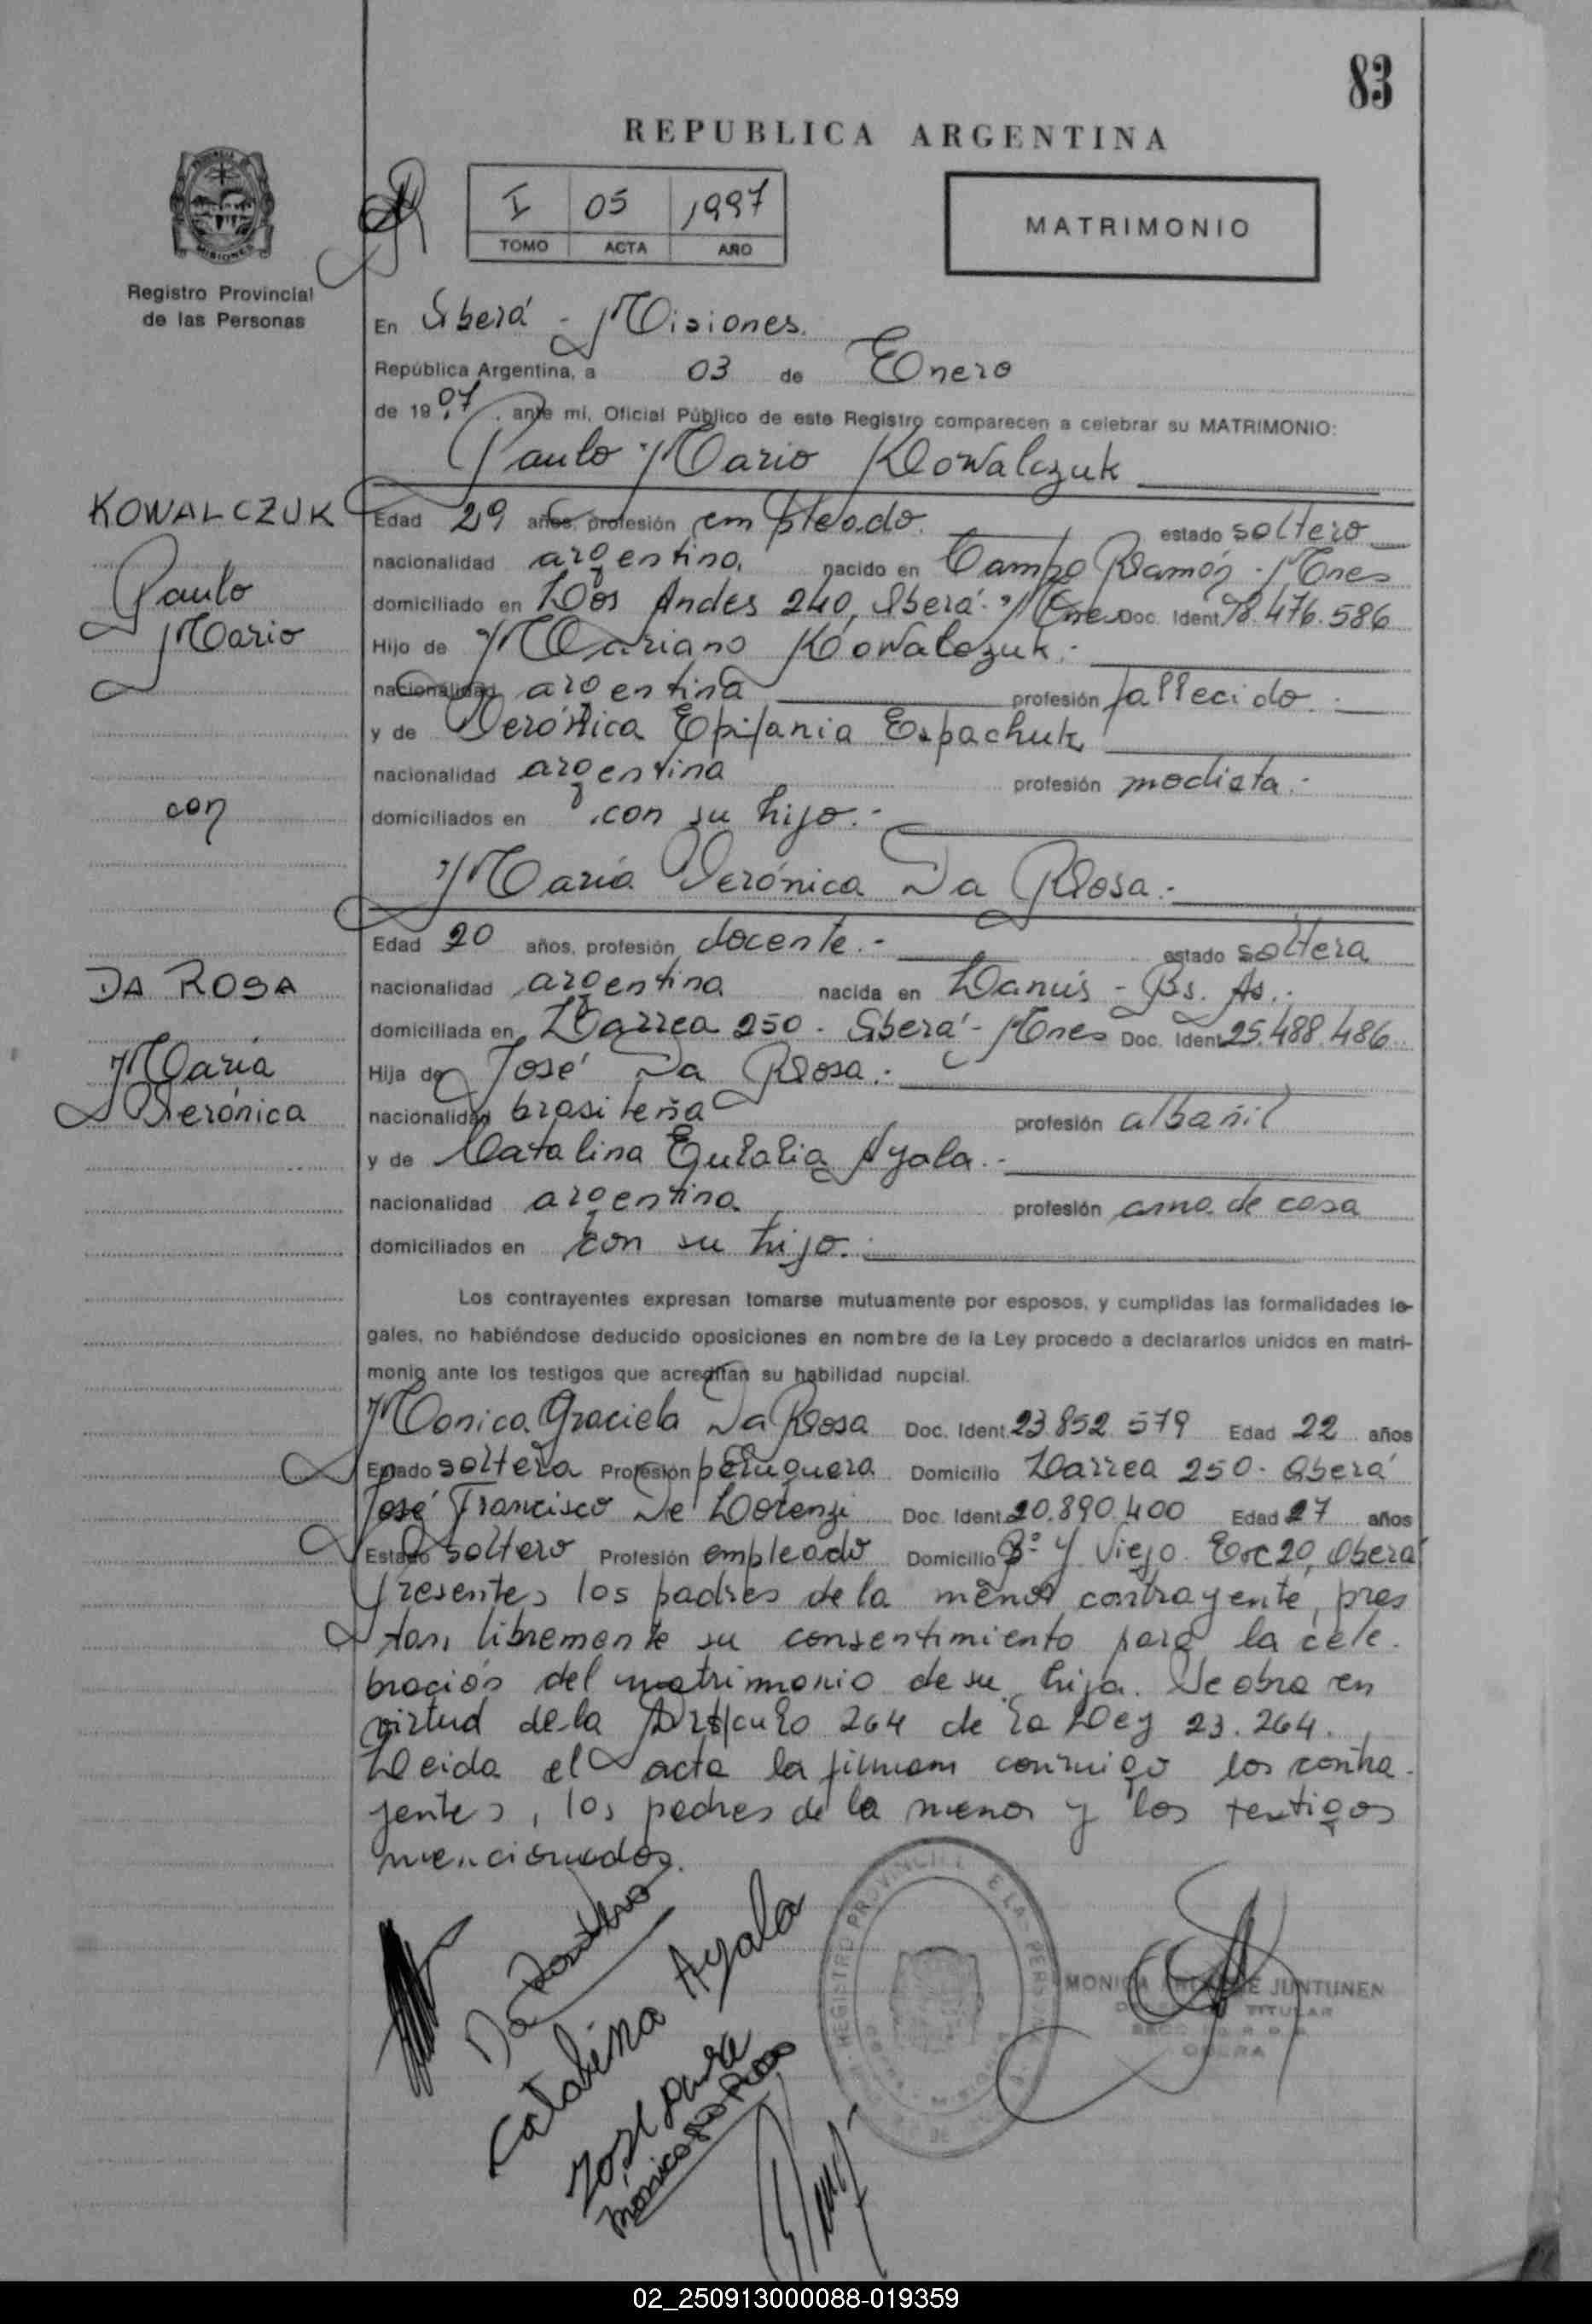 83
REPUBLICA ARGENTINA
I 05 1997
TOMO ACTA AÑO
MATRIMONIO
Registro Provincial
de las Personas
En Oberá - Misiones.
República Argentina, a 03 de Enero
de 1997, ante mi, Oficial Público de este Registro comparecen a celebrar su MATRIMONIO:
Paulo Mario Kowalczuk
KOWALCZUK
Paulo
Mario
con
DA ROSA
María
Verónica
Edad 29 años, profesión empleado. estado soltero
nacionalidad argentina nacido en Campo Ramón - Mnes
domiciliado en Los Andes 240, Oberá - Mnes Doc. Ident. 18.476.586
Hijo de Mariano Kowalczuk.-
nacionalidad argentina profesión fallecido.-
y de Verónica Epifania Espachuk
nacionalidad argentina profesión modista.-
domiciliados en con su hijo.-
María Verónica Da Rosa.-
Edad 20 años, profesión docente.- estado soltera
nacionalidad argentina nacida en Lanús - Bs. As.-
domiciliada en Larrea 250 - Oberá - Mnes Doc. Ident. 25.488.486
Hija de José Da Rosa.-
nacionalidad brasileña profesión albañil
y de Catalina Eulalia Ayala.-
nacionalidad argentina profesión ama de casa
domiciliados en con su hija.
Los contrayentes expresan tomarse mutuamente por esposos, y cumplidas las formalidades le-
gales, no habiéndose deducido oposiciones en nombre de la Ley procedo a declararlos unidos en matri-
monio ante los testigos que acreditan su habilidad nupcial.
Monica Graciela Da Rosa Doc. Ident. 23.852.579 Edad 22 años
Estado soltera Profesión peluquera Domicilio Larrea 250 - Oberá
José Francisco De Lorenzi Doc. Ident. 20.890.400 Edad 27 años
Estado soltero Profesión empleado Domicilio Bº Y Viejo. Esc 20, Oberá
Presentes los padres de la menor contrayente, pres
tan libremente su consentimiento para la cele-
bración del matrimonio de su hija. Se obra en
virtud de la Artículo 264 de la Ley 23.264.
Leida el acta la firman conmigo los contra-
yentes, los padres de la menor y los testigos
mencionados.
Catalina Ayala
MONICA JUNTUNEN
TITULAR
OBERA
02_250913000088-019359